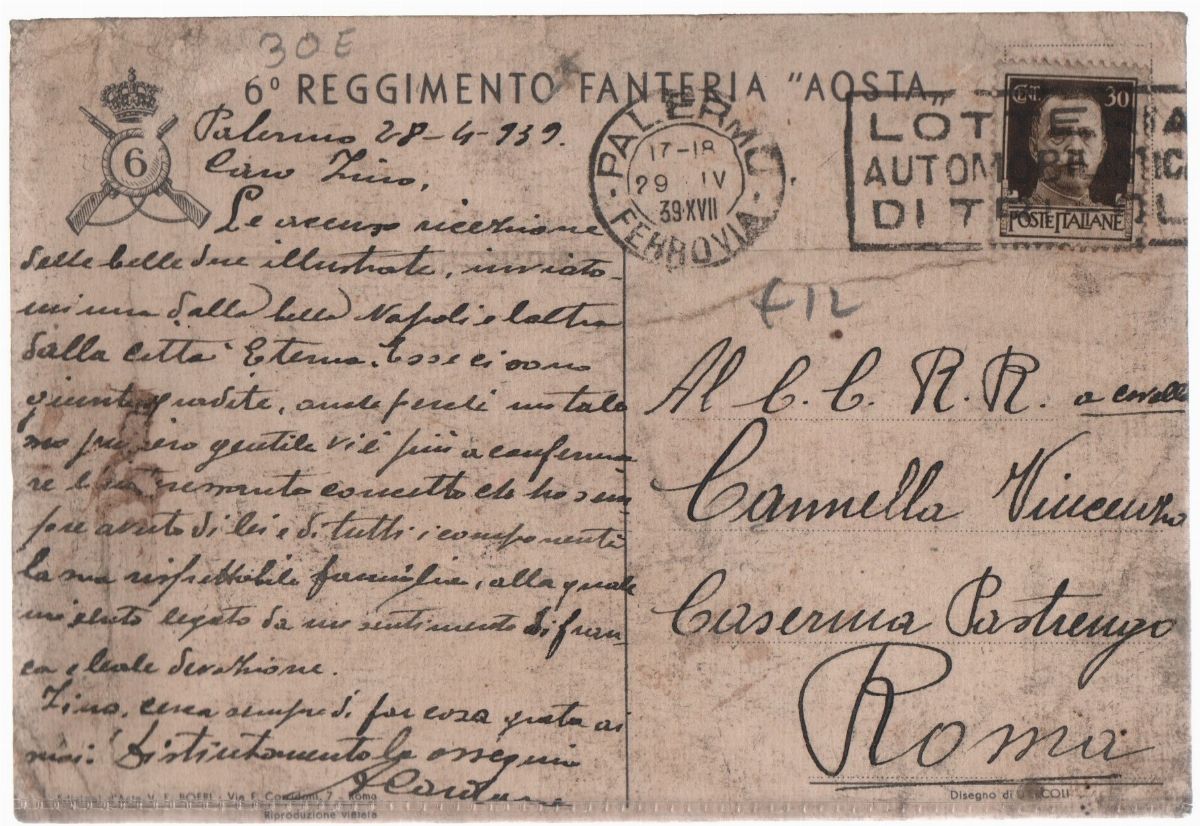 30E
6º REGGIMENTO FANTERIA "AOSTA„
6
Palermo 28-4-939.
Caro Zino,
Le accuso ricezione
delle belle due illustrate, inviato-
mi una dalla bella Napoli e l'altra
dalla città Eterna. Esse ci sono
giunte gradite, anche perché un tale
gentile vi è più a conferma
re concetto che ho sem
pre avuto di lei e di tutti i componenti
la sua rispettabile famiglia, alla quale
mi sento legato da un sentimento di fran
ca e leale devozione.
Zino, cerca sempre di far cosa grata ai
Distintamente la ossequio
PALERMO
17-18
29 IV
39·XVII
FERROVIA
LOT
AUTOM
DI T
CENT 30
POSTE ITALIANE
£12
Al C. C. R. R. a cavallo
Cannella Vincenzo
Caserma Pastrengo
Roma
V. E. BOERI - Via F. 7 - Roma
Riproduzione vietata
Disegno di